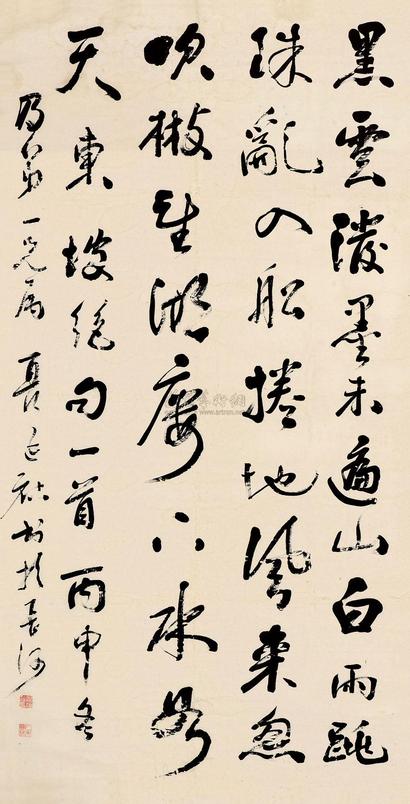 黑雲潑墨未遮山白雨跳
珠亂入船捲地風來忽
吹散望湖樓下水如
天東坡絕句一首丙申冬
一兄屬 書於